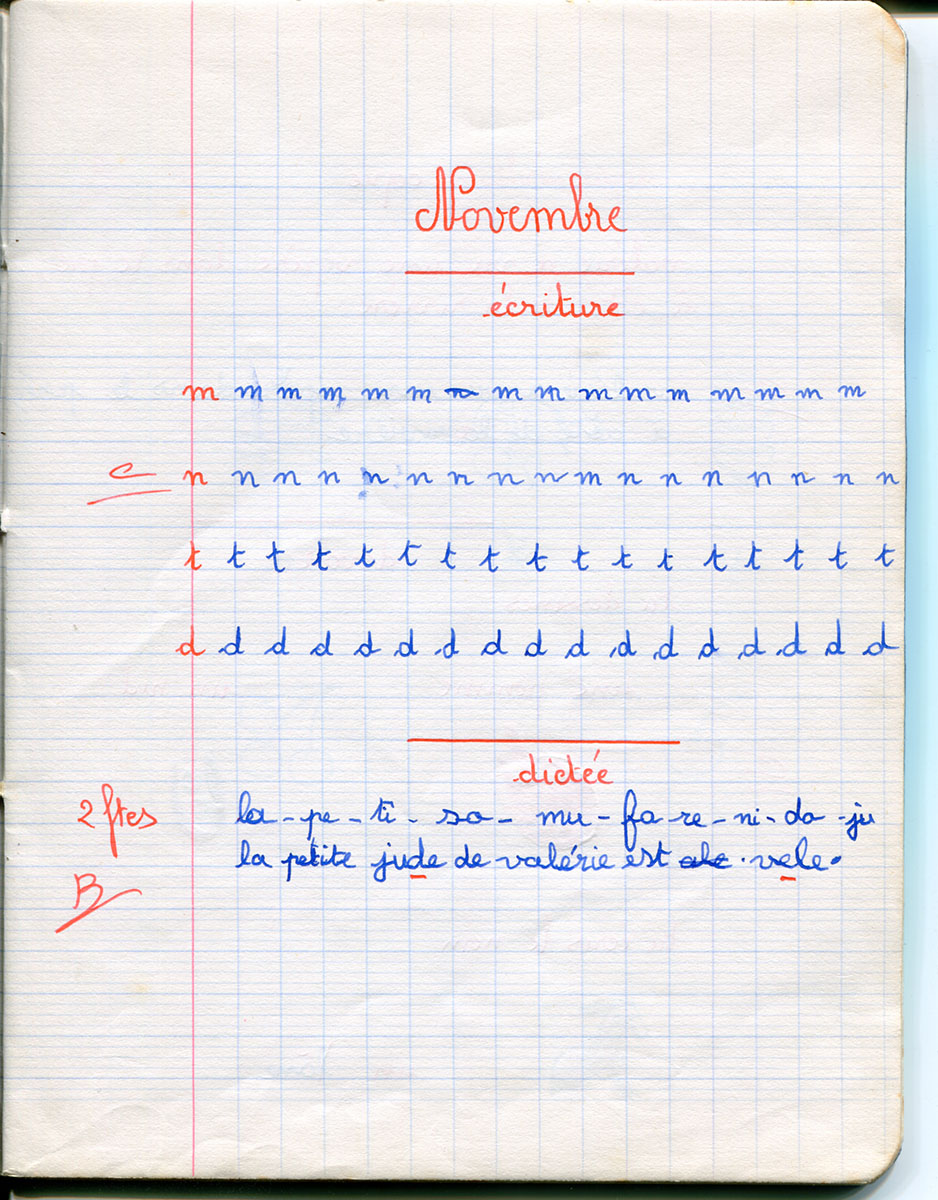 Novembre
écriture
m m m m m m m m m m m m m m m
c n n n n n n n n n m n n n n n n n
t t t t t t t t t t t t t t t t t
d d d d d d d d d d d d d d d d d
dictée
2 ftes la - pe - ti - so - mu - fa - re - ni - do - ju
la petite jude de valérie est vele.
B